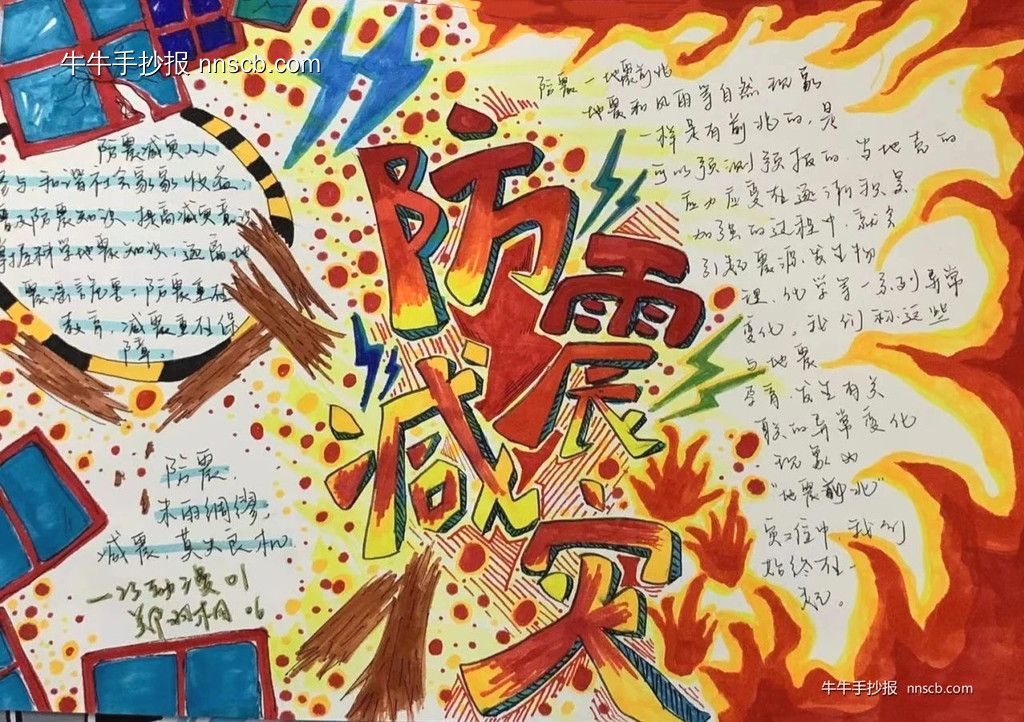 牛牛手抄报 nnscb.com
防震减灾人人
参与 和谐社会家家收益;
普及防震知识、提高减灾意识
掌握科学地震知识;远离地
震谣言危害;防震重在
教育、减震重在保
障。
防震,
未雨绸缪;
减震、莫失良机。
防
震
减
灾
防震—地震前兆
地震和风雨等自然现象
一样是有前兆的,是
可以预测预报的.当地壳的
应力应变在逐渐积累、
加强的过程中、就会
引起震源、发生物
理、化学等一系列异常
变化。我们称这些
与地震
孕育、发生有关
联的异常变化
现象为
"地震前兆"
灾难中,我们
始终在一
起。
牛牛手抄报 nnscb.com